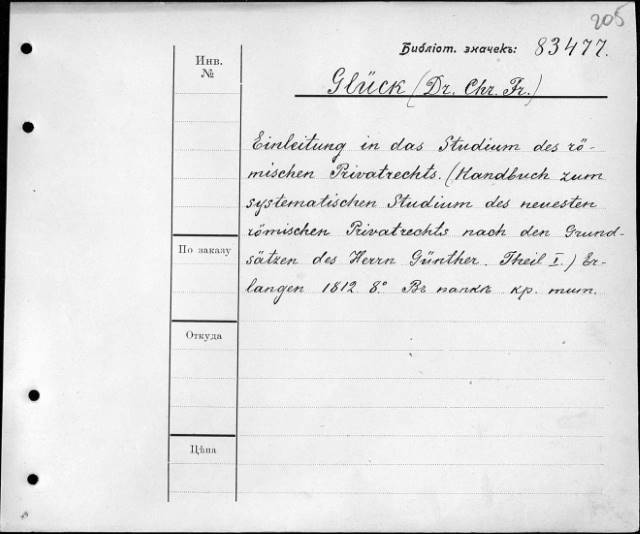 205
Библіот. значекъ: 83477.
Инв.
№
Glück (Dr. Chr. Fr.)
Einleitung in das Studium des rö-
mischen Privatrechts. (Handbuch zum
systematischen Studium des neuesten
römischen Privatrechts nach den Grund-
По заказу
sätzen des Herrn Günther. Theil I.) Er-
langen 1812. 8.° Въ папкѣ кр. тит.
Откуда
Цѣна